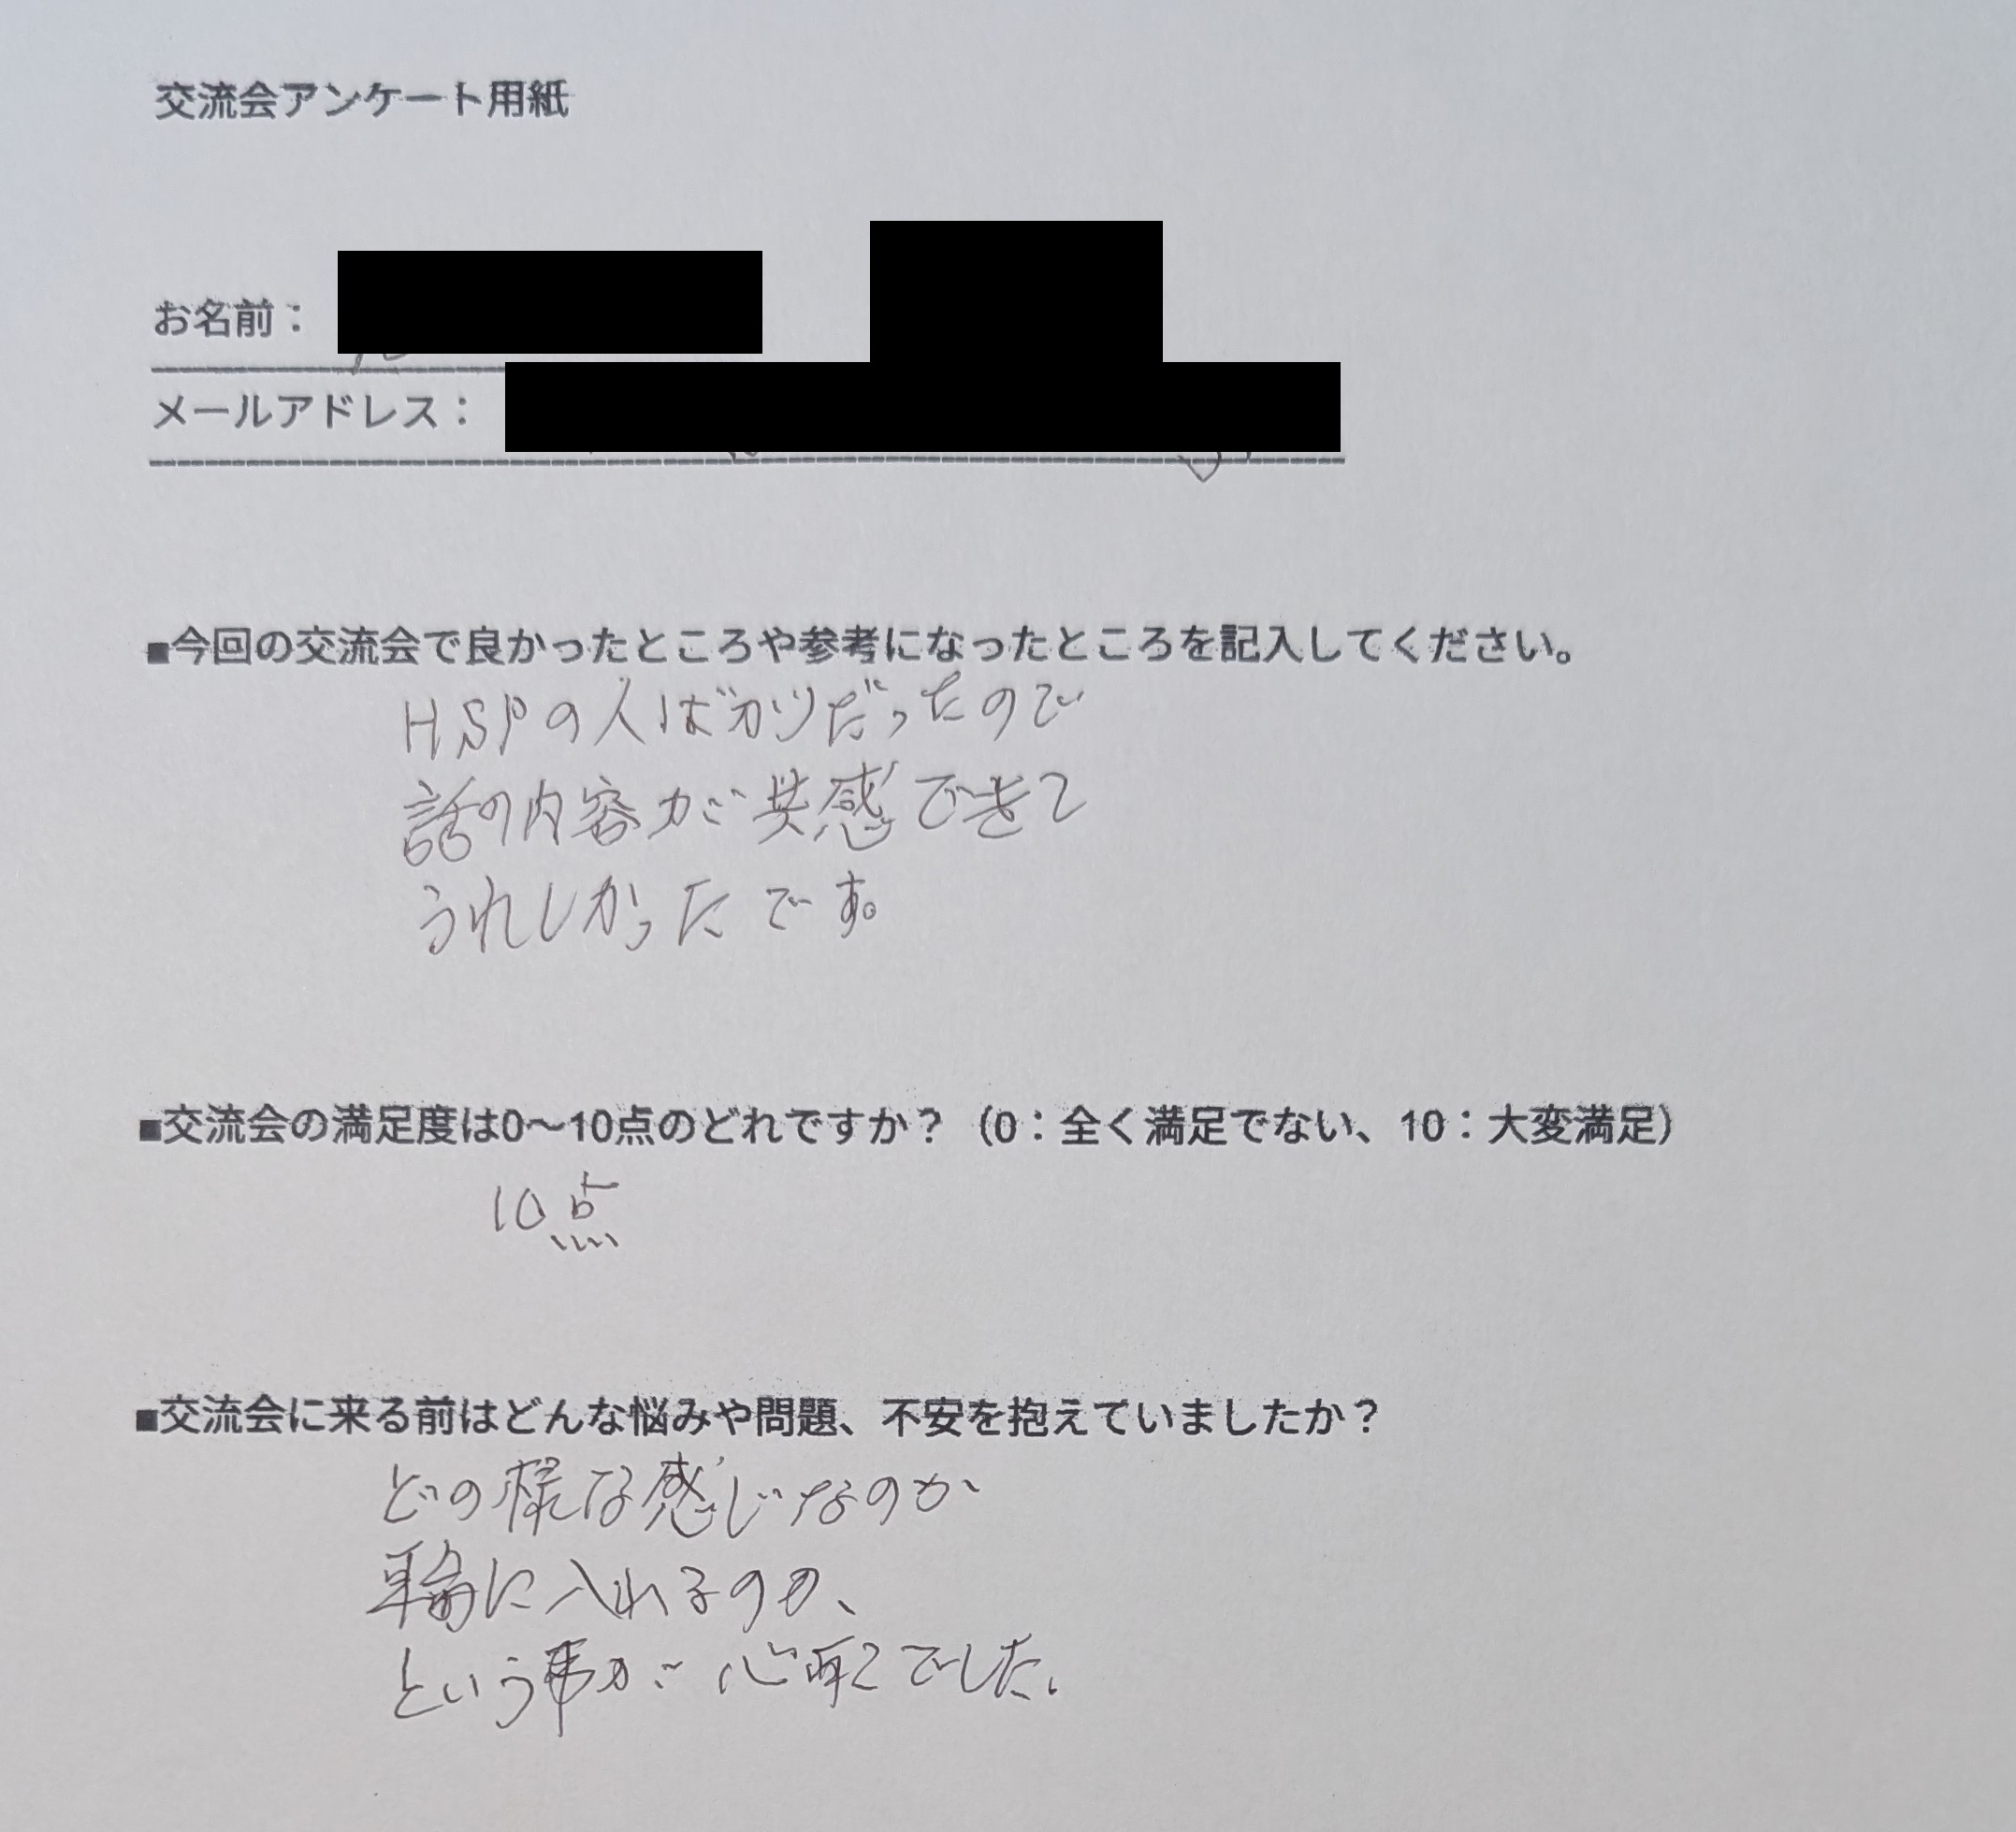 交流会アンケート用紙
お名前：
メールアドレス：
■今回の交流会で良かったところや参考になったところを記入してください。
HSPの人ばかりだったので
話の内容が共感できて
うれしかったです。
■交流会の満足度は0〜10点のどれですか？（0：全く満足でない、10：大変満足）
10点
■交流会に来る前はどんな悩みや問題、不安を抱えていましたか？
どの様な感じなのか
輪に入れるのか、
という事が心配でした。